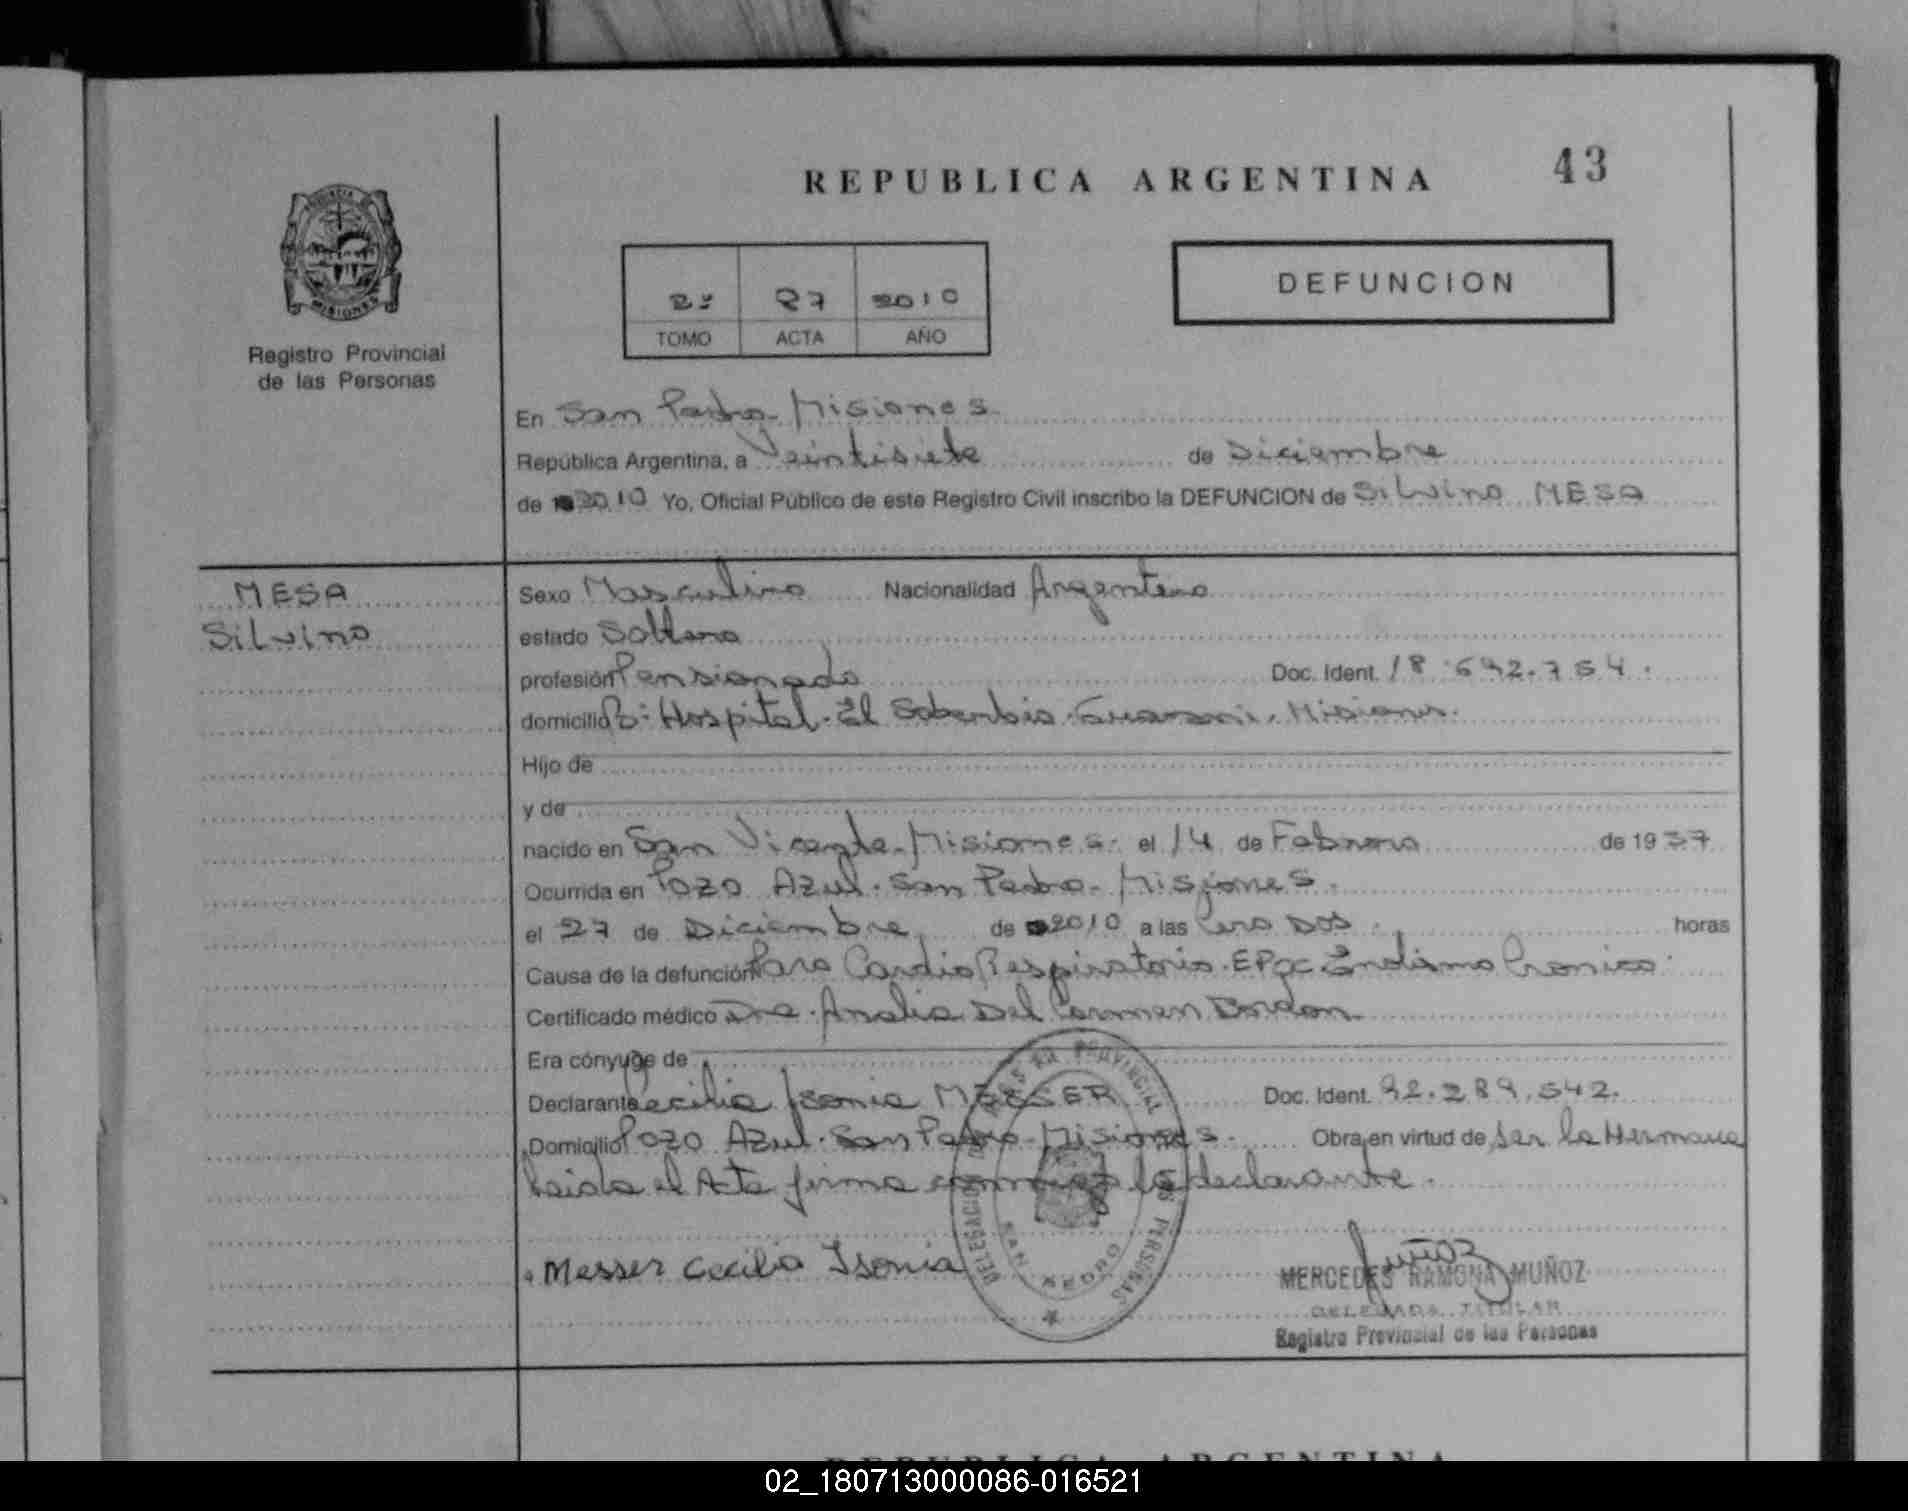 REPUBLICA ARGENTINA
43
PROVINCIA DE
MISIONES
Registro Provincial
de las Personas
2º 27 2010
TOMO ACTA AÑO
DEFUNCION
En San Pedro - Misiones
República Argentina, a Veintisiete de Diciembre
de 2010 Yo, Oficial Público de este Registro Civil inscribo la DEFUNCION de Silvino MESA
MESA
Silvino
Sexo Masculino Nacionalidad Argentino
estado Soltero
profesión Pensionado Doc. Ident. 18.692.754.
domicilio B: Hospital. El Soberbio. Guarani. Misiones.
Hijo de
y de
nacido en San Vicente - Misiones. el 14 de Febrero de 1937
Ocurrida en Pozo Azul. San Pedro - Misiones.
el 27 de Diciembre de 2010 a las Cero Dos. horas
Causa de la defunción Paro Cardio Respiratorio. Cronico.
Certificado médico Dra. Analia Del Carmen Bordon
Era cónyuge de
Declarante Cecilia Isonia MESSER Doc. Ident. 92.289.542.
Domicilio Pozo Azul. San Pedro - Misiones. Obra en virtud de ser la Hermana
Leida el Acta firma conmigo la declarante.
DELEGACION REGISTRO PROVINCIAL DE LAS PERSONAS
SAN PEDRO
Messer Cecilia Isonia
Muñoz
MERCEDES RAMONA MUÑOZ
DELEGADA TITULAR
Registro Provincial de las Personas
REPUBLICA ARGENTINA
02_180713000086-016521